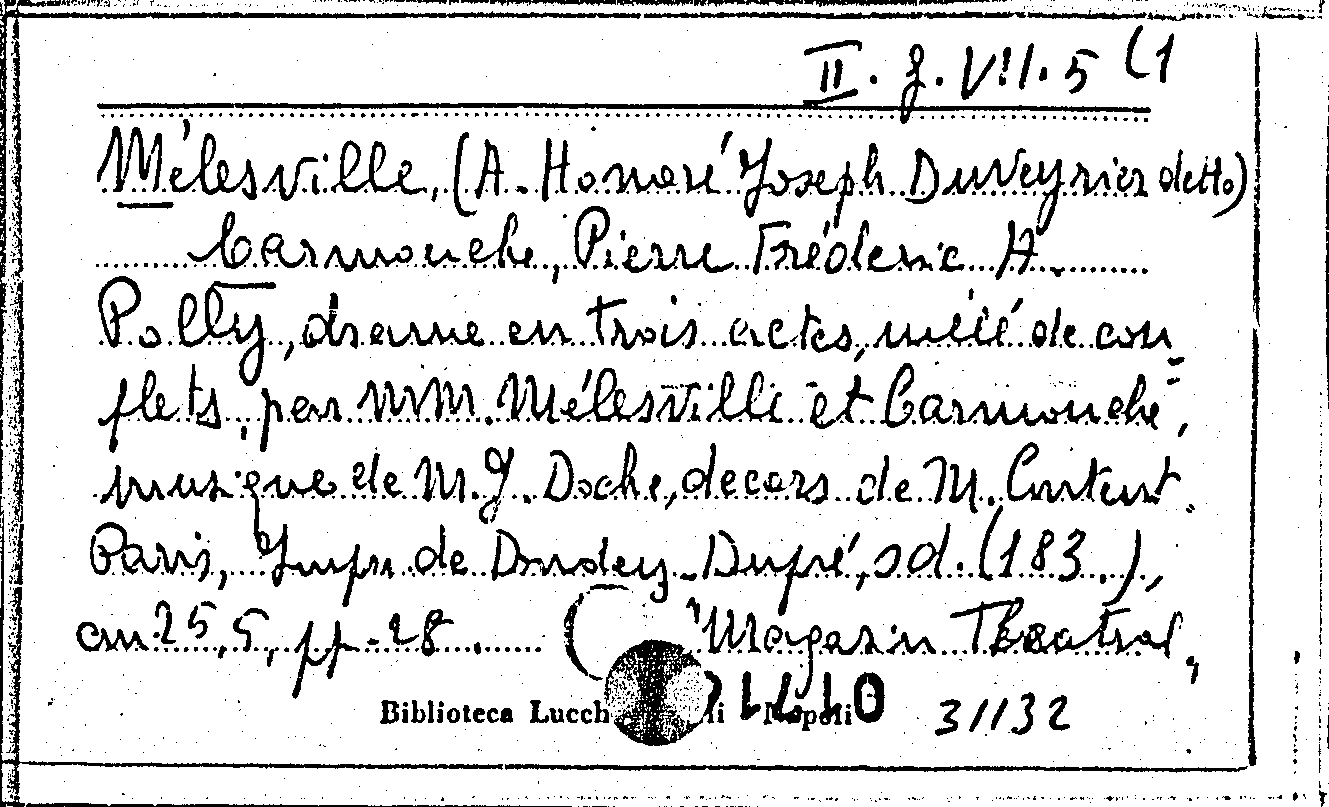 II. g. VII. 5 (1
Mélesville, (A. Honoré Joseph Duveyrier detto)
Carmouche, Pierre Fréderic A.
Polly, drame en trois actes, mêlé de cou-
plets, par MM. Mélesville et Carmouche,
musique de M. J. Doche, decors de M. Content.
Paris, Impr. de Dondey-Dupré, s d. (183..),
cm. 25,5, pp. 28. Magasin Theatral,
Biblioteca Lucch li Napoli 31132